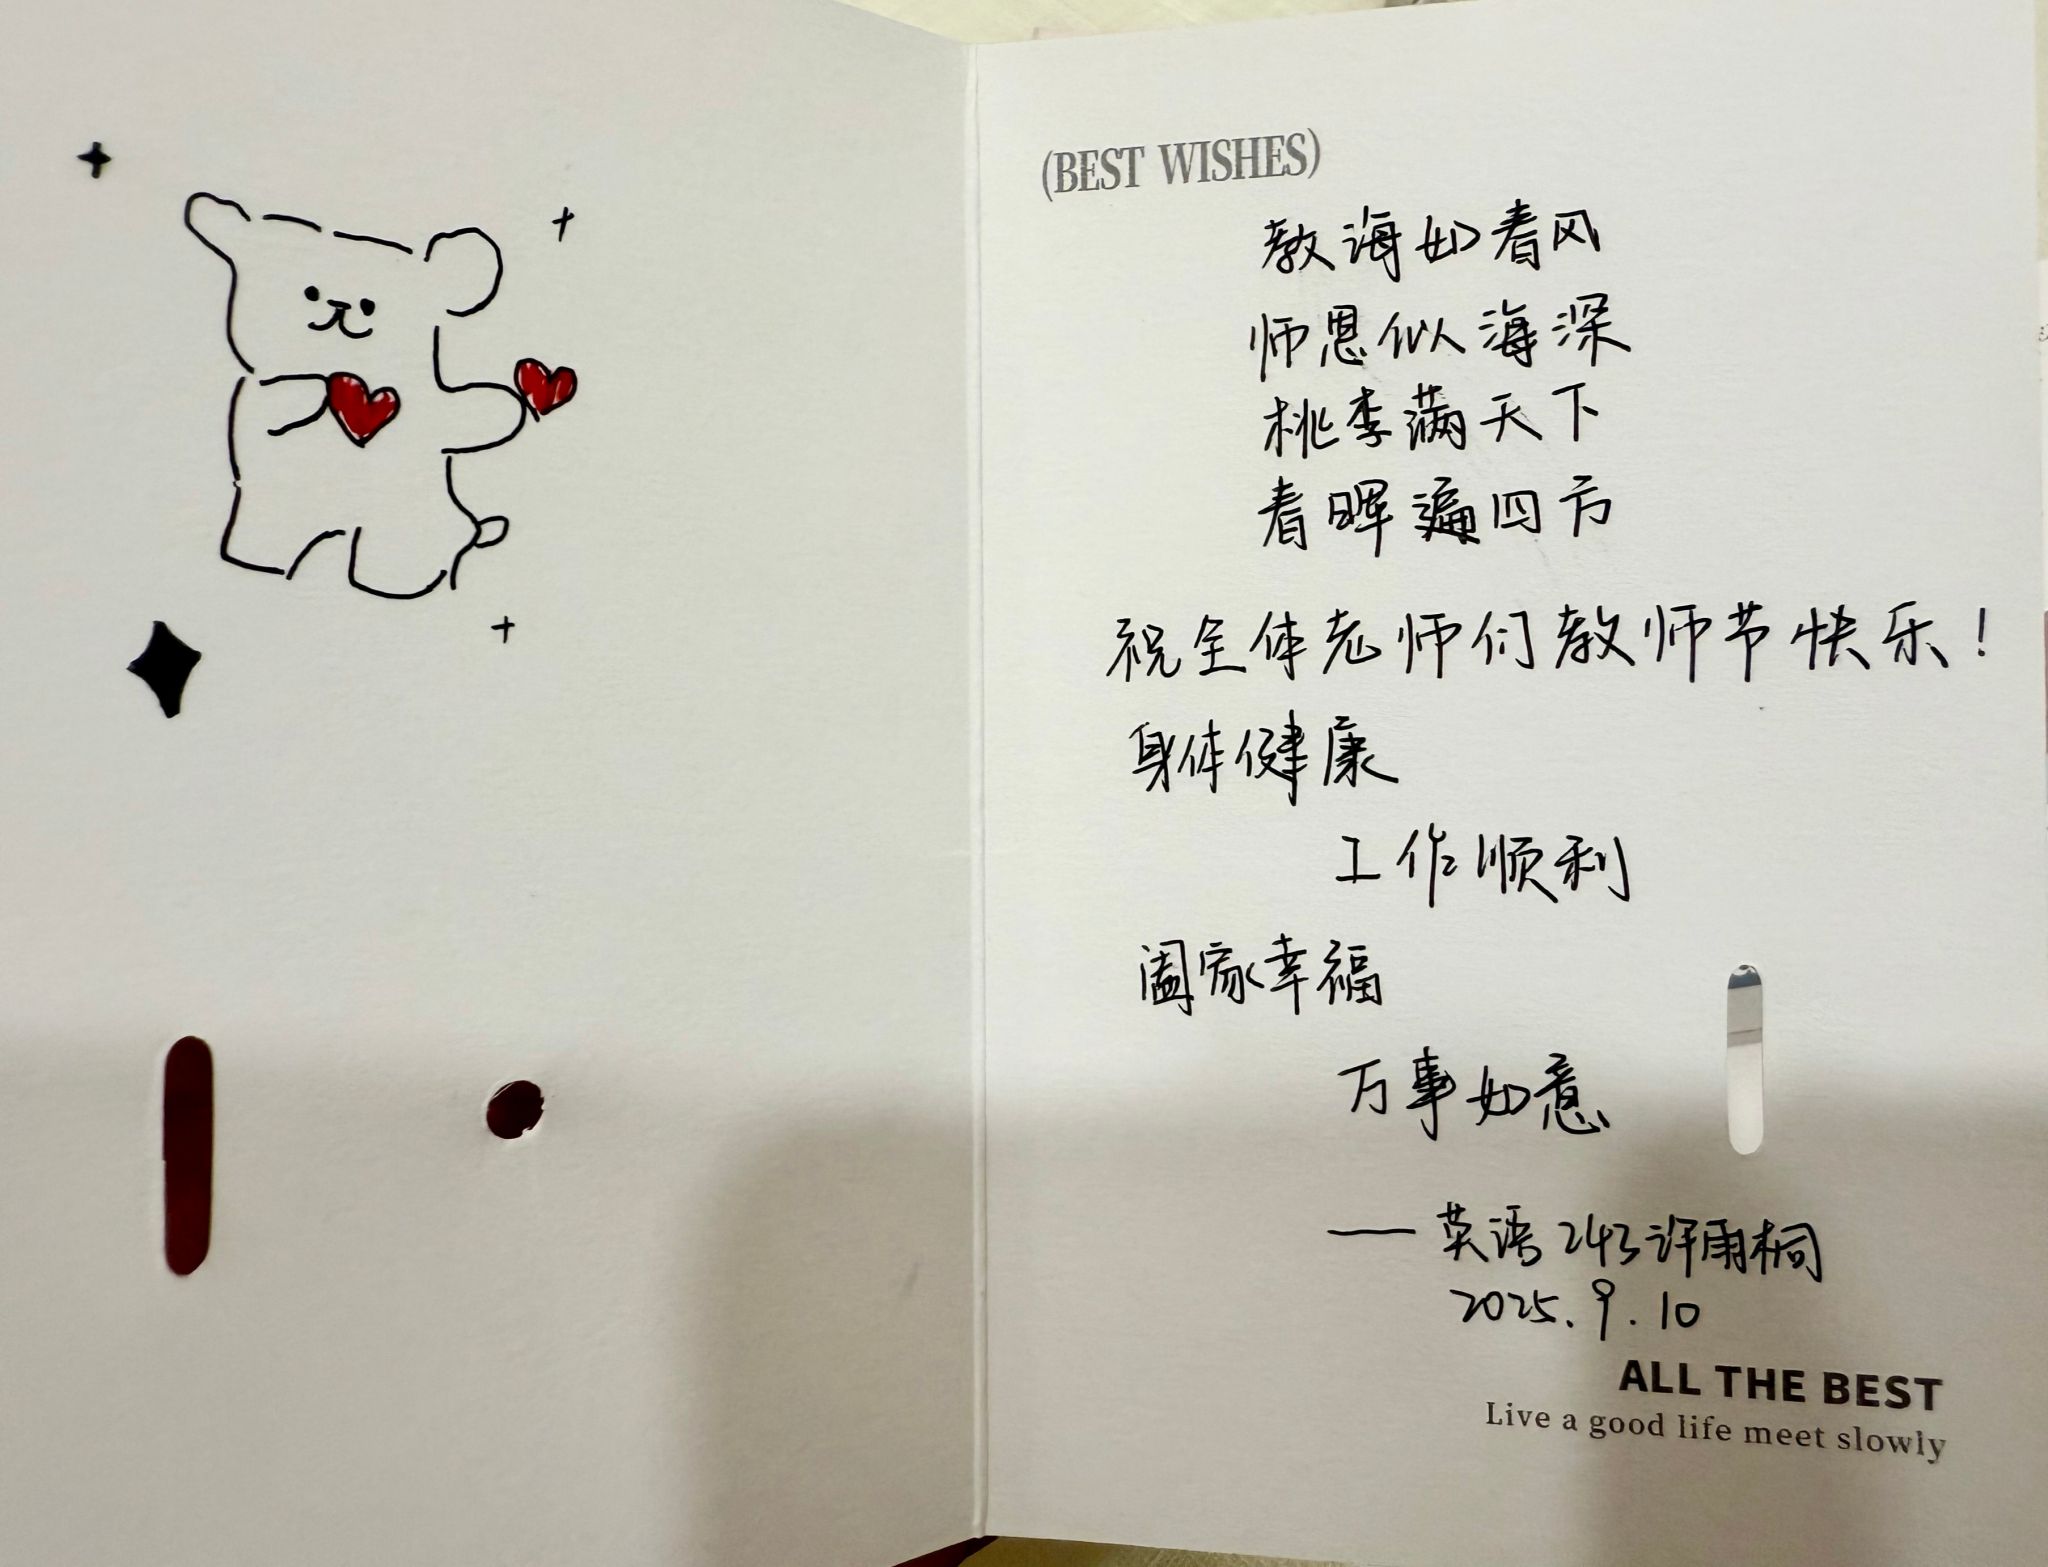 (BEST WISHES)
教诲如春风
师恩似海深
桃李满天下
春晖遍四方
祝全体老师们教师节快乐！
身体健康
工作顺利
阖家幸福
万事如意
——英语243许雨桐
2025.9.10
ALL THE BEST
Live a good life meet slowly